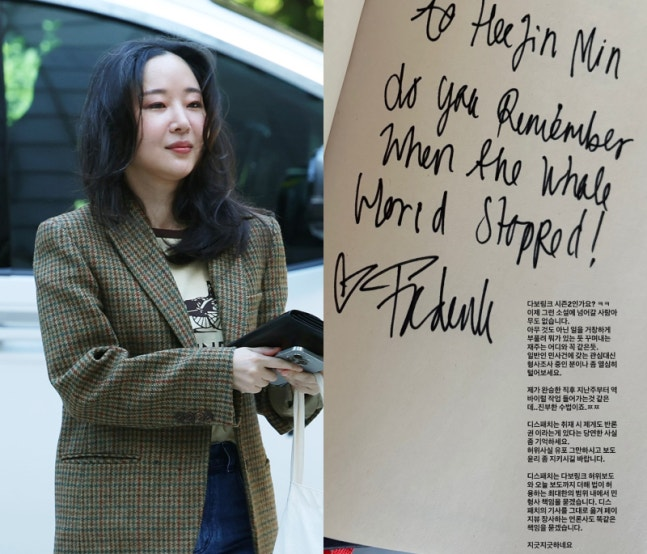 to HeeJin Min
do you Remember
When the Whale
World Stopped!
다보링크 시즌2인가요? ㅋㅋ
이제 그런 소설에 넘어갈 사람아
무도 없습니다.
아무 것도 아닌 일을 거창하게
부풀려 뭐가 있는 듯 꾸며내는
재주는 어디와 꼭 같은듯.
일반인 민사건에 갖는 관심대신
형사조사 중인 분이나 좀 열심히
털어보세요.
제가 완승한 직후 지난주부터 역
바이럴 작업 들어가는것 같은
데..진부한 수법이죠.ㅉㅉ
디스패치는 취재 시 제게도 반론
권 이라는게 있다는 당연한 사실
좀 기억하세요.
허위사실 유포 그만하시고 보도
윤리 좀 지키시길 바랍니다.
디스패치는 다보링크 허위보도
와 오늘 보도까지 더해 법이 허
용하는 최대한의 범위 내에서 민
형사 책임을 묻겠습니다. 디스
패치의 기사를 그대로 옮겨 페이
지뷰 장사하는 언론사도 똑같은
책임을 묻겠습니다.
지긋지긋하네요